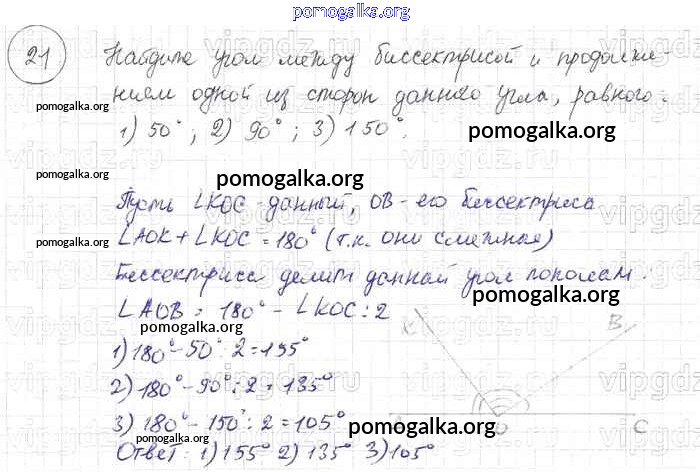 pomogalka.org
21 Найдите угол между биссектрисой и продолже-
нием одной из сторон данного угла, равного:
pomogalka.org
1) 50°; 2) 90°; 3) 150°.
pomogalka.org
pomogalka.org
pomogalka.org
Пусть ∠KOC - данный, OB - его биссектриса
∠AOK + ∠KOC = 180° (т.к. они смежные)
pomogalka.org
Биссектриса делит данный угол пополам.
pomogalka.org
∠AOB = 180° - ∠KOC : 2
pomogalka.org
K B
1) 180° - 50° : 2 = 155°
2) 180° - 90° : 2 = 135°
pomogalka.org
3) 180° - 150° : 2 = 105°
pomogalka.org
A O C
pomogalka.org
Ответ: 1) 155° 2) 135° 3) 105°
vipgdz.ru